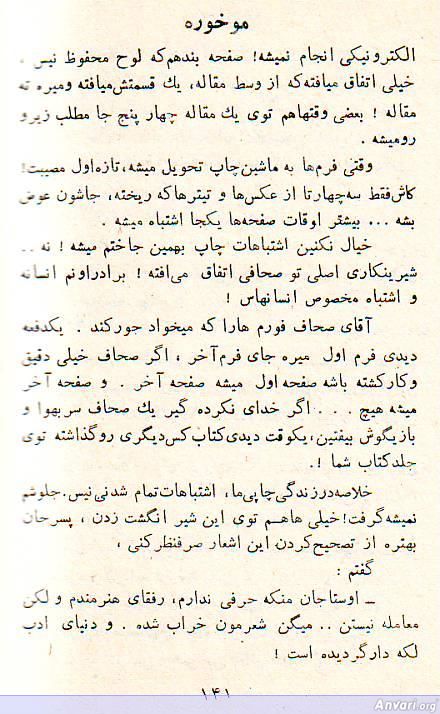 موخوره
الکترونیکی انجام نمیشه! صفحه بندهم‌که لوح محفوظ نیس.
خیلی اتفاق میافته‌که از وسط مقاله، یك قسمتش‌میافته ومیره ته
مقاله ! بعضی وقتهاهم توی یك مقاله چهار پنج جا مطلب زیرو
رومیشه .
وقتی فرم‌ها به ماشین‌چاپ تحویل میشه، تازه‌اول مصیبت!
کاش‌فقط سه‌چهارتا از عکس‌ها و تیترهاکه ریخته، جاشون عوض
بشه ... بیشتر اوقات صفحه‌ها یکجا اشتباه میشه .
خیال نکنین اشتباهات چاپ بهمین جاختم میشه ! نه ..
شیرینکاری اصلی تو صحافی اتفاق می‌افته ! برادراونم انسانه
و اشتباه مخصوص انسانهاس !
آقای صحاف فورم هارا که میخواد جورکند . یکدفعه
دیدی فرم اول میره جای فرم‌آخر ، اگر صحاف خیلی دقیق
وکارکشته باشه صفحه‌اول میشه صفحه آخر . و صفحه آخر
میشه هیچ . . . اگر خدای نکرده گیر یك صحاف سربهوا و
بازیگوش بیفتین، یکوقت دیدی‌کتاب کس‌دیگری روگذاشته توی
جلدکتاب شما !.
خلاصه‌درزندگی‌چاپی‌ما، اشتباهات‌تمام شدنی‌نیس.جلوشم
نمیشه‌گرفت!خیلی هاهم توی این شیر انگشت زدن ، پسرجان
بهتره از تصحیح‌کردن این اشعار صرفنظرکنی ،
گفتم :
ــ اوستاجان منکه حرفی ندارم، رفقای هنرمندم و لکن
معامله نیستن .. میگن شعرمون خراب شده . و دنیای ادب
لکه دارگردیده است !
۱۴۱
Anvari.org